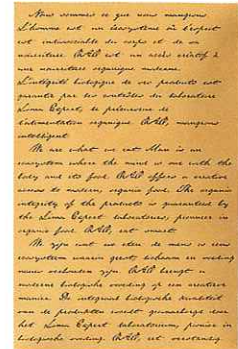 Nous sommes ce que nous mangeons
L'homme est un écosystème où l'esprit
est indissociable du corps et de sa
nourriture. est un accès créatif à
une nourriture organique moderne.
L'intégrité biologique de ces produits est
garantie par les contrôles du laboratoire
Lima Expert, le précurseur de
l'alimentation organique. mangeons
intelligent
We are what we eat Man is an
ecosystem where the mind is one with the
body and its food. offers a creative
access to modern, organic food. The organic
integrity of the products is guaranteed by
the Lima Expert laboratories, pioneer in
organic food. eat smart
We zijn wat we eten de mens is een
ecosysteem waarin geest, lichaam en voeding
nauw verbonden zijn. brengt
moderne biologische voeding op een creatieve
manier. De integraal biologische kwaliteit
van de produkten wordt gewaarborgd door
het Lima Expert laboratorium, pionier in
biologische voeding. eet verstandig